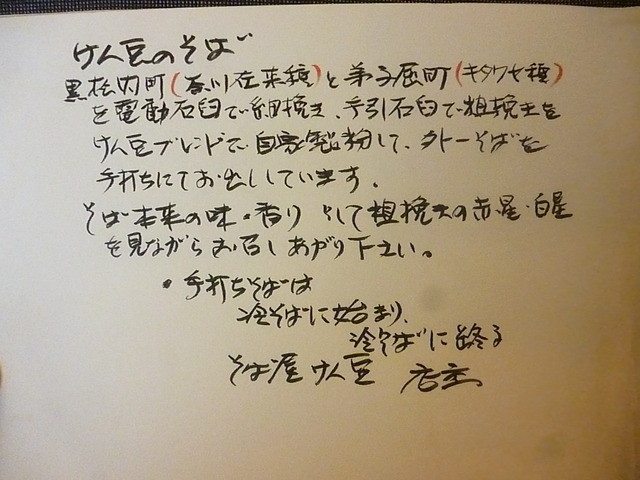 けん豆のそば
黒松内町(奈川在来種)と弟子屈町(キタワセ種)
を電動石臼で細挽き、手引石臼で粗挽きを
けん豆ブレンドで自家製粉して、外一そばを
手打ちにてお出ししています。
そば本来の味・香り そして粗挽きの赤星・白星
を見ながらお召しあがり下さい。
・手打ちそばは
冷そばに始まり、
冷そばに終る
そば屋 けん豆 店主